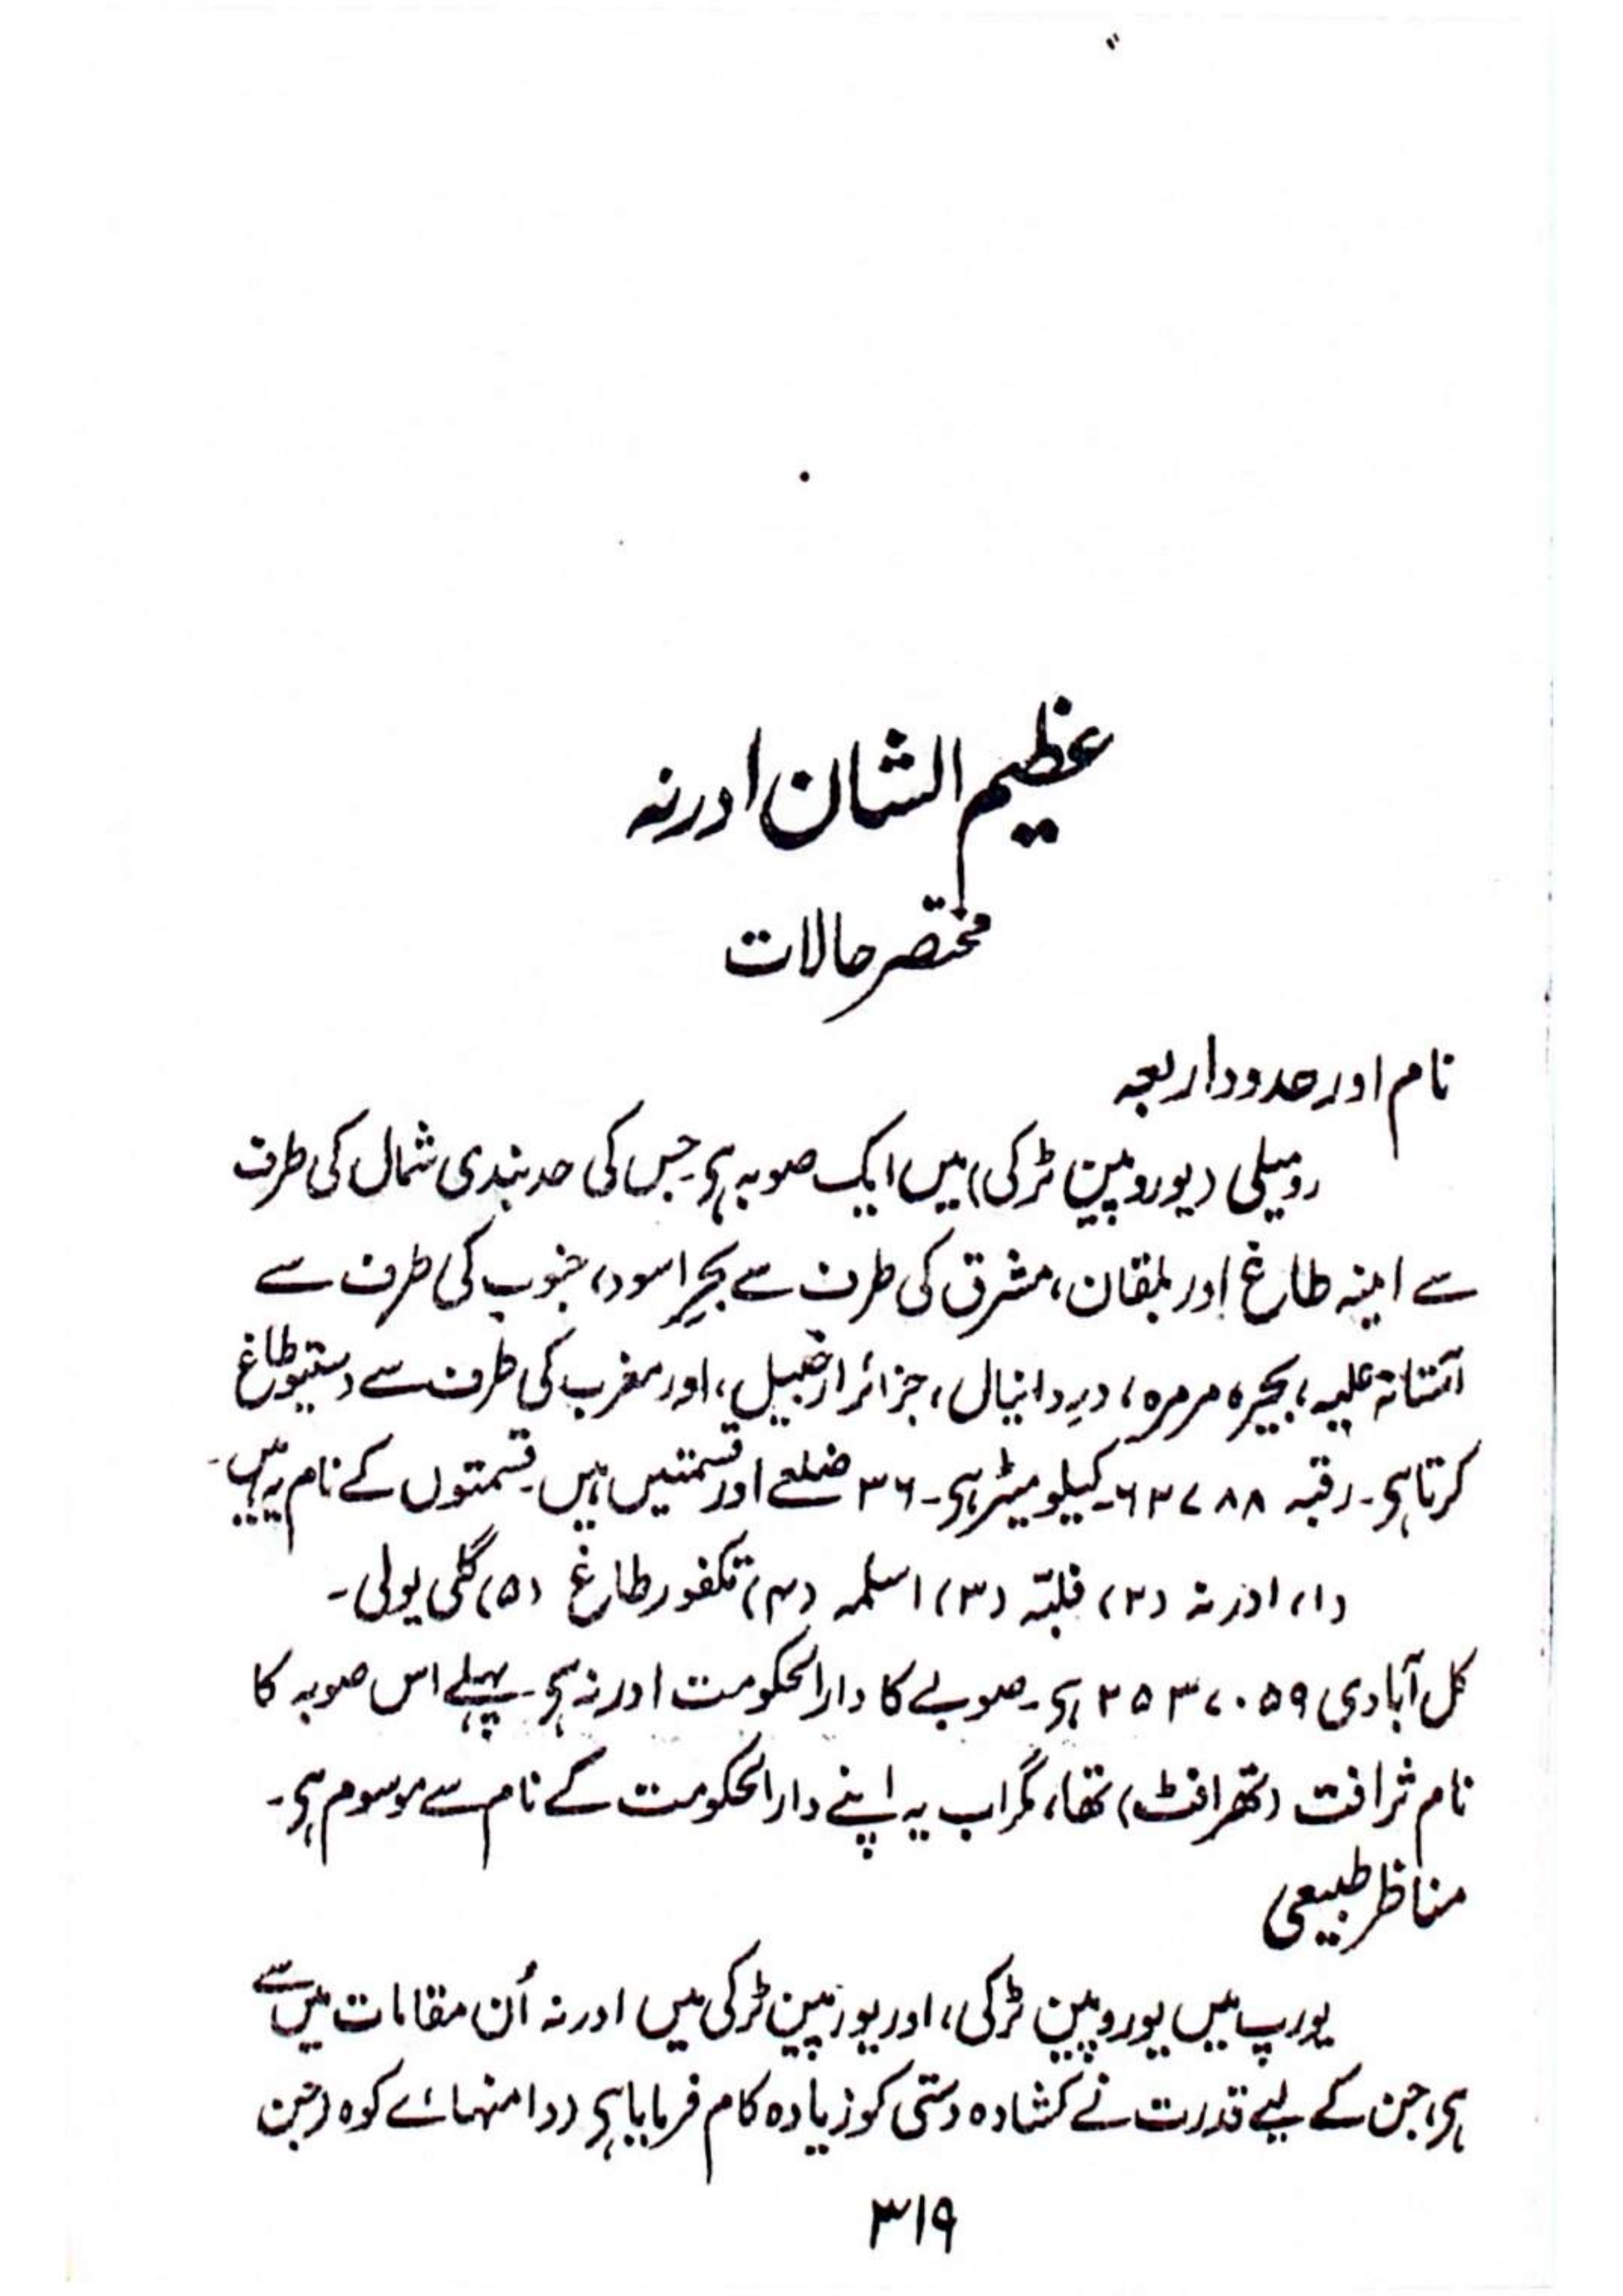 عظیم الشان ادرنہ
مختصر حالات
نام اور حدود اربعہ
رومیلی (یوروپین ٹرکی) میں ایک صوبہ ہی جس کی حد بندی شمال کی طرف
سے امینہ طاغ اور بلقان، مشرق کی طرف سے بحرِ اسود، جنوب کی طرف سے
آستانۂ علیہ، بحیرہ مرمرہ، درِ دانیال، جزائر ارخبیل، اور مغرب کی طرف سے دستیوطاغ
کرتا ہی۔ رقبہ ۶۳۷۸۸۔ کیلو میٹر ہی۔ ۳۶ ضلعے اور قسمتیں ہیں۔ قسمتوں کے نام یہ ہیں۔
(۱) ادرنہ (۲) فلبّہ (۳) اسلمہ (۴) تکفور طاغ (۵) گلی پولی۔
کل آبادی ۲۵۳۷۰۵۹ ہی۔ صوبے کا دارالحکومت ادرنہ ہی۔ پہلے اس صوبہ کا
نام ثرافت (تھرافٹ) تھا، مگر اب یہ اپنے دارالحکومت کے نام سے موسوم ہی۔
مناظر طبیعی
یورپ میں یوروپین ٹرکی، اور یورپین ٹرکی میں ادرنہ اُن مقامات میں سے
ہی، جن کے لیے قدرت نے کشادہ دستی کو زیادہ کام فرمایا ہی (دامنہائے کوہ (جن
۳۱۹